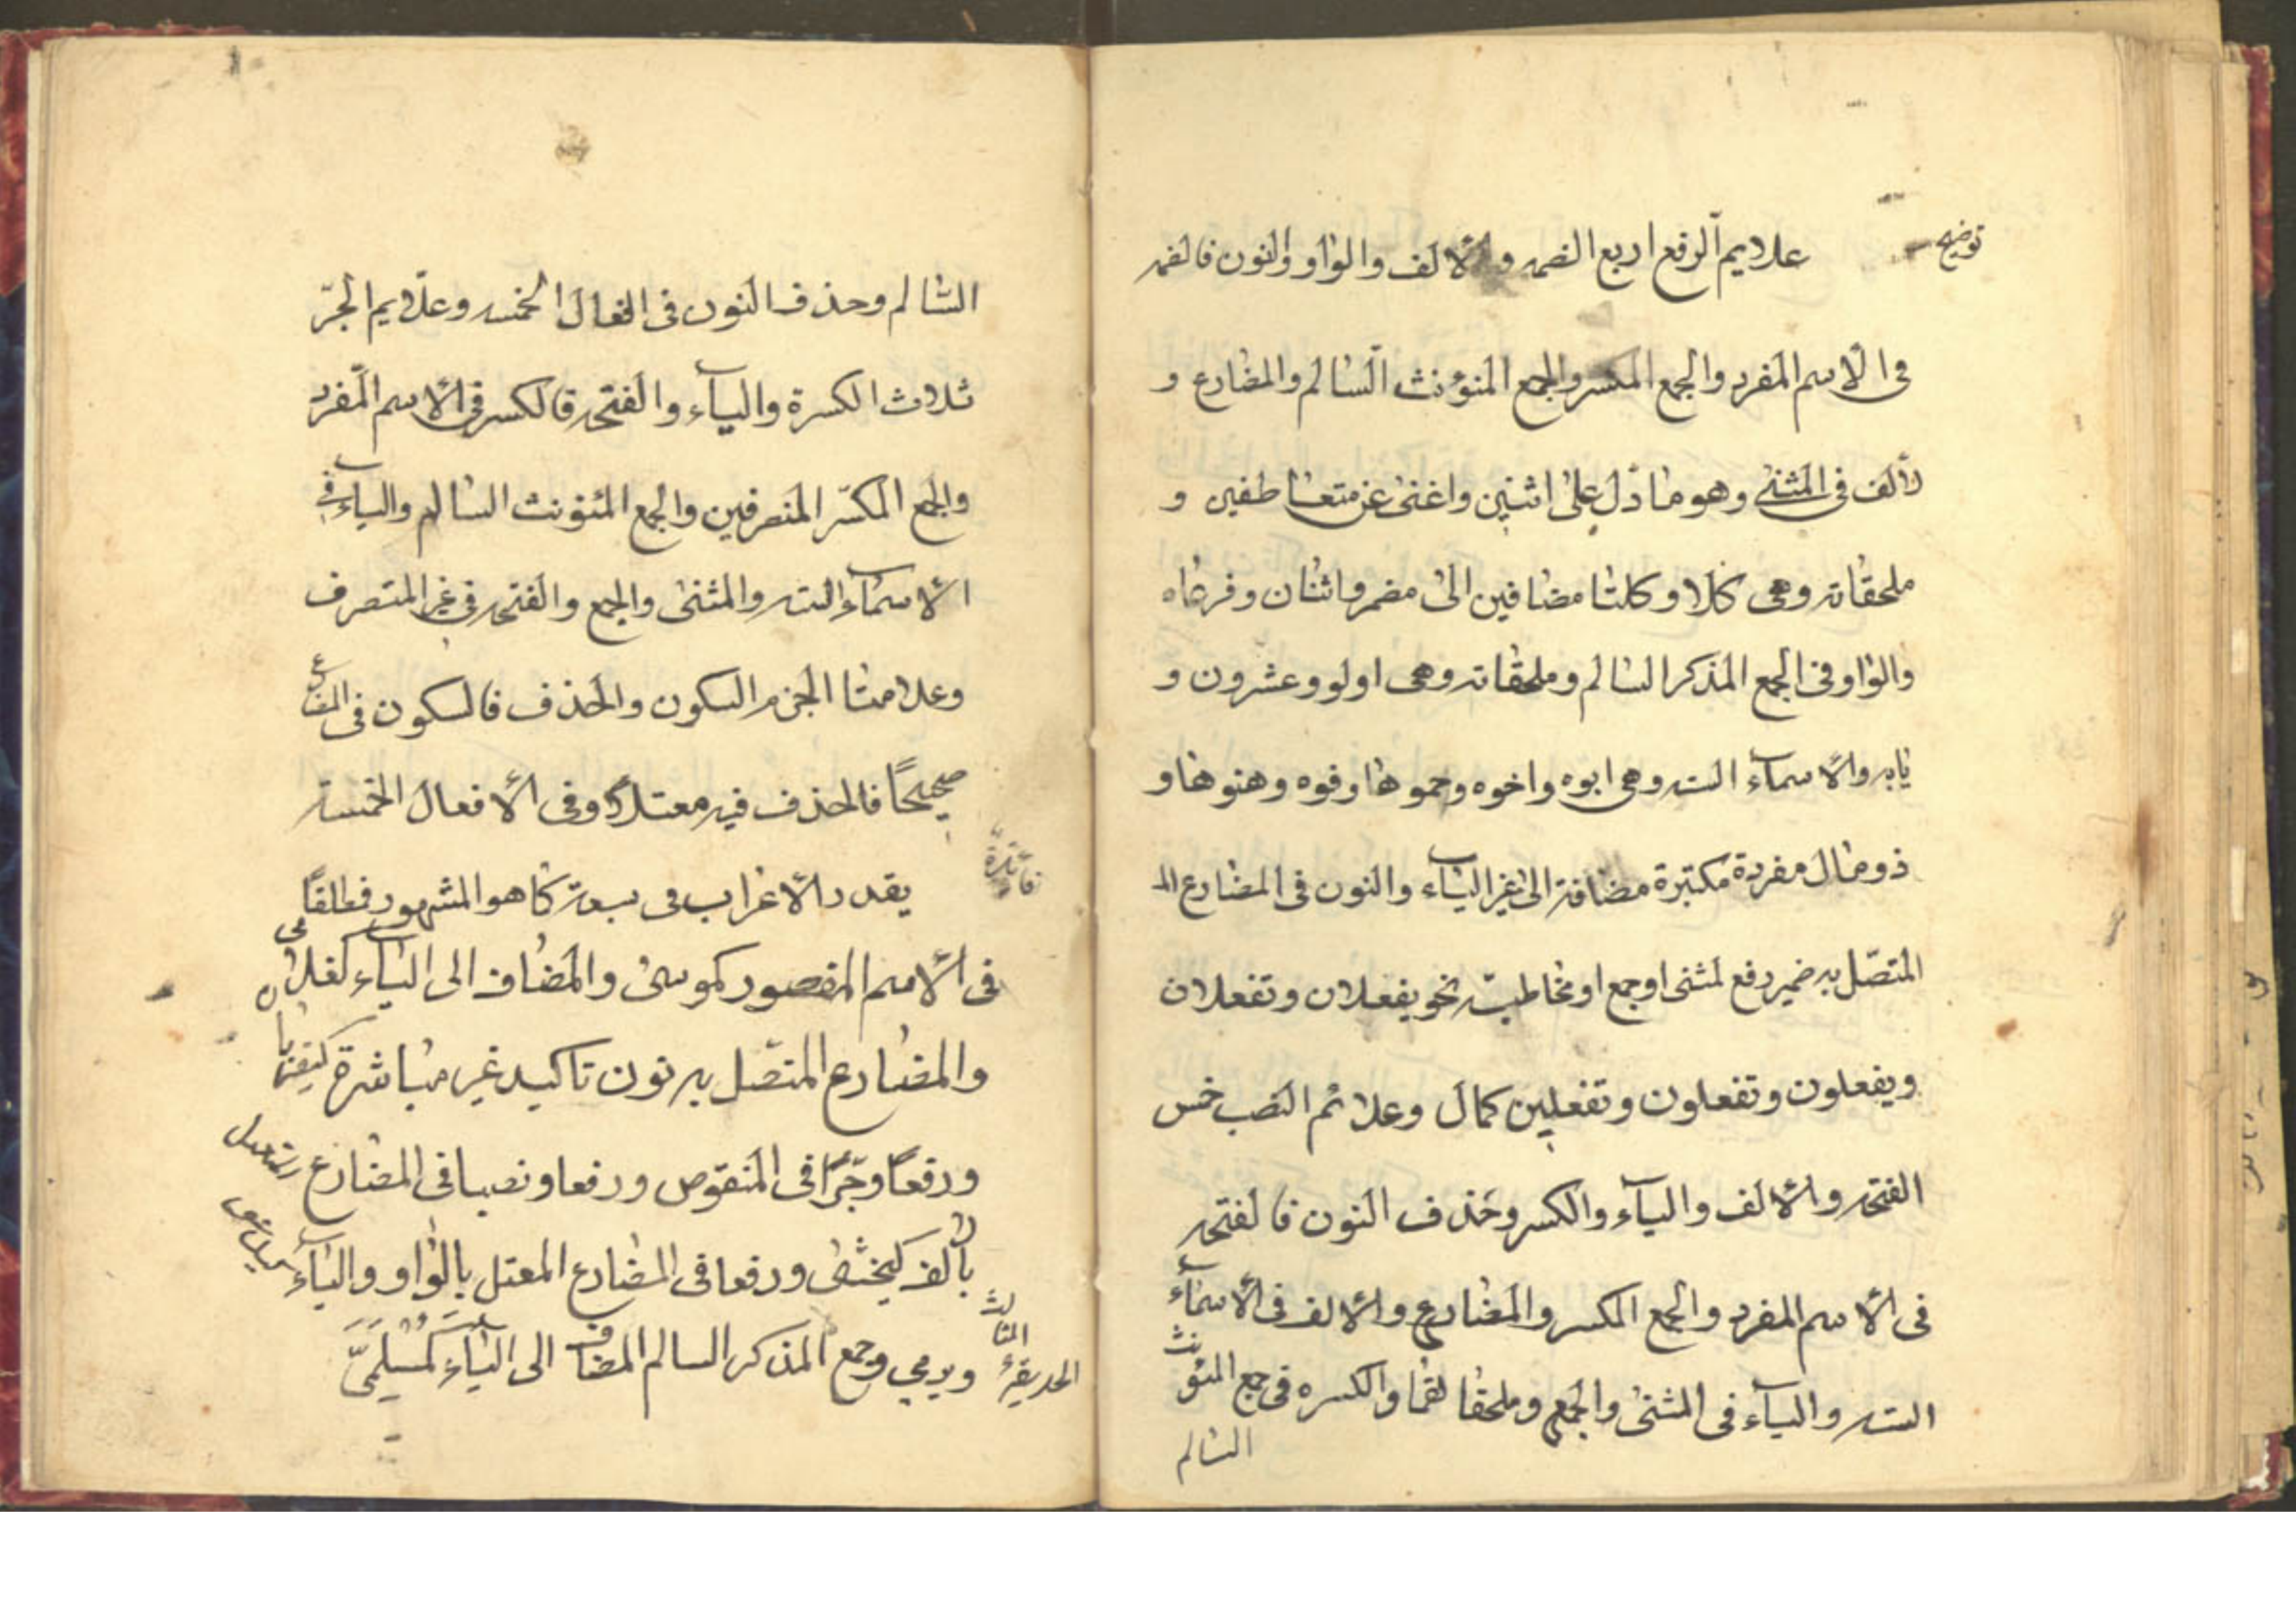 توضيح
علايم الرفع اربع الضمه والالف والواو والنون فالضمه
فى الاسم المفرد والجمع المكسر والجمع المئونث السالم والمضارع و
لألف فى المثنى وهو ما دل على اثنين واغنى عن متعاطفين و
ملحقاته وهى كلا وكلتا مضافين الى مضمر واثنان وفرعاه
والواو فى الجمع المذكر السالم وملحقاته وهى اولو وعشرون و
بابه والاسمآء السته وهى ابوه واخوه وحموها وفوه وهنوها و
ذو مال مفردة مكبرة مضافة الى غير الياء والنون فى المضارع الم
المتصل به ضمير رفع لمثنى او جمع او مخاطبة نحو يفعلان وتفعلان
ويفعلون وتفعلون وتفعلين كمال وعلائم النصب خمس
الفتحه والالف واليآء والكسر وحذف النون فالفتحه
فى الاسم المفرد والجمع المكسر والمضارع والالف فى الاسمآء
السته واليآء فى المثنى والجمع وملحقاتهما والكسره فى جمع المئونث
السالم
السالم وحذف النون فى افعال الخمسه وعلايم الجرّ
ثلاث الكسرة واليآء والفتحه فالكسر فى الاسم المفرد
والجمع المكسّر المنصرفين والجمع المئونث السالم والياء فى
الاسمآء السته والمثنى والجمع والفتحه فى غير المتصرف
وعلامتا الجزم السكون والحذف فالسكون فى المضارع
صحيحًا فالحذف فيه معتلاً وفى الافعال الخمسة
فائدة
يقدر الاعراب فى سبعة كما هو المشهور فمطلقًا
فى الاسم المقصور كموسى والمضاف الى اليآء كغلامى
والمضارع المتصل به نون تاكيد غير مباشرة كيضربان
ورفعًا وجرًّا فى المنقوص ورفعا ونصبا فى المضارع
بالف كيخشى ورفعا فى المضارع المعتل بالواو واليآء
ويرمي وجمع المذكر السالم المضاف الى اليآء كمُسْلِمَىَّ
الحديقة الثالث